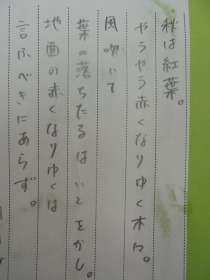 秋は紅葉。
やうやう赤くなりゆく木々。
風吹いて
葉の落ちたるは いとをかし。
地面の赤くなりゆくは
言ふべきにあらず。